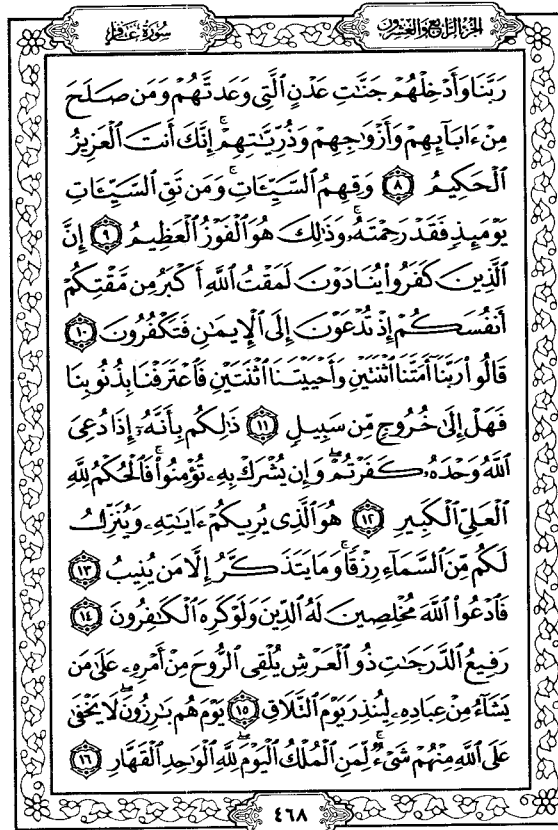 الجزء الرابع والعشرون
سورة غافر
رَبَّنَا وَأَدْخِلْهُمْ جَنَّٰتِ عَدْنٍ ٱلَّتِي وَعَدتَّهُمْ وَمَن صَلَحَ
مِنْ ءَابَآئِهِمْ وَأَزْوَٰجِهِمْ وَذُرِّيَّٰتِهِمْۚ إِنَّكَ أَنتَ ٱلْعَزِيزُ
ٱلْحَكِيمُ ٨ وَقِهِمُ ٱلسَّيِّـَٔاتِۚ وَمَن تَقِ ٱلسَّيِّـَٔاتِ
يَوْمَئِذٍ فَقَدْ رَحِمْتَهُۥۚ وَذَٰلِكَ هُوَ ٱلْفَوْزُ ٱلْعَظِيمُ ٩ إِنَّ
ٱلَّذِينَ كَفَرُوا۟ يُنَادَوْنَ لَمَقْتُ ٱللَّهِ أَكْبَرُ مِن مَّقْتِكُمْ
أَنفُسَكُمْ إِذْ تُدْعَوْنَ إِلَى ٱلْإِيمَٰنِ فَتَكْفُرُونَ ١٠
قَالُوا۟ رَبَّنَآ أَمَتَّنَا ٱثْنَتَيْنِ وَأَحْيَيْتَنَا ٱثْنَتَيْنِ فَٱعْتَرَفْنَا بِذُنُوبِنَا
فَهَلْ إِلَىٰ خُرُوجٍ مِّن سَبِيلٍ ١١ ذَٰلِكُم بِأَنَّهُۥٓ إِذَا دُعِىَ
ٱللَّهُ وَحْدَهُۥ كَفَرْتُمْۖ وَإِن يُشْرَكْ بِهِۦ تُؤْمِنُوا۟ۚ فَٱلْحُكْمُ لِلَّهِ
ٱلْعَلِىِّ ٱلْكَبِيرِ ١٢ هُوَ ٱلَّذِى يُرِيكُمْ ءَايَٰتِهِۦ وَيُنَزِّلُ
لَكُم مِّنَ ٱلسَّمَآءِ رِزْقًاۚ وَمَا يَتَذَكَّرُ إِلَّا مَن يُنِيبُ ١٣
فَٱدْعُوا۟ ٱللَّهَ مُخْلِصِينَ لَهُ ٱلدِّينَ وَلَوْ كَرِهَ ٱلْكَٰفِرُونَ ١٤
رَفِيعُ ٱلدَّرَجَٰتِ ذُو ٱلْعَرْشِ يُلْقِى ٱلرُّوحَ مِنْ أَمْرِهِۦ عَلَىٰ مَن
يَشَآءُ مِنْ عِبَادِهِۦ لِيُنذِرَ يَوْمَ ٱلتَّلَاقِ ١٥ يَوْمَ هُم بَٰرِزُونَۖ لَا يَخْفَىٰ
عَلَى ٱللَّهِ مِنْهُمْ شَىْءٌۚ لِّمَنِ ٱلْمُلْكُ ٱلْيَوْمَۖ لِلَّهِ ٱلْوَٰحِدِ ٱلْقَهَّارِ ١٦
٤٦٨